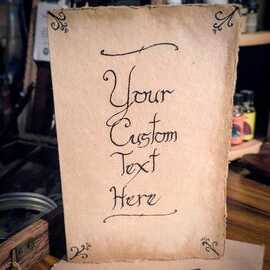 Your
Custom
Text
Here